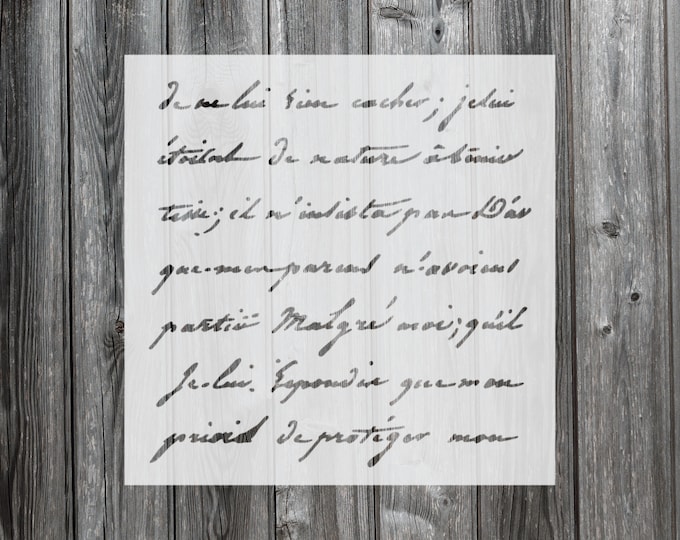 De ne lui rien cacher; je lui
de nature à
il n'insista pas
que mon parens n'avoient
partir Malgré moi; qu'il
Je lui Repondis que mon
de protéger mon